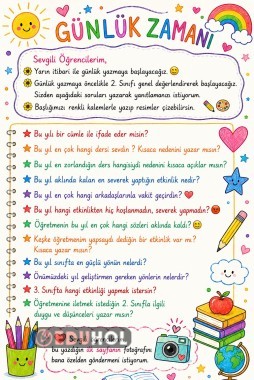 GÜNLÜK ZAMANI
Sevgili Öğrencilerim,
Yarın itibari ile günlük yazmaya başlayacağız.
Günlük yazmaya öncelikle 2. Sınıfı genel değerlendirerek başlayacağız.
Sizden aşağıdaki soruları yazarak yanıtlamanızı istiyorum.
Başlığımızı renkli kalemlerle yazıp resimler çizebilirsin.
Bu yılı bir cümle ile ifade eder misin?
Bu yıl en çok hangi dersi sevdin ? Kısaca nedenini yazar mısın?
Bu yıl en zorlandığın ders hangisiydi nedenini kısaca açıklar mısın?
Bu yıl aklında kalan en severek yaptığın etkinlik nedir?
Bu yıl en çok hangi arkadaşlarınla vakit geçirdin?
Bu yıl hangi etkinlikten hiç hoşlanmadın, severek yapmadın?
Öğretmenin bu yıl en çok hangi sözleri aklında kaldı?
Keşke öğretmenim yapsaydı dediğin bir etkinlik var mı?
Kısaca yazar mısın?
Bu yıl sınıfta en güçlü yönün nelerdi?
Önümüzdeki yıl geliştirmen gereken yönlerin nelerdir?
3. Sınıfta hangi etkinliği yapmak istersin?
Öğretmenine iletmek istediğin 2. Sınıfla ilgili
duygu ve düşünceleri yazar mısın?
EDUHOL
bu yazdığın ilk sayfanın fotoğrafını
bana özelden göndermeni istiyorum.